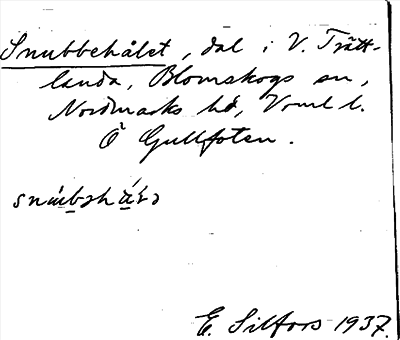 Snubbehålet, dal i V. Trätt-
landa, Blomskogs sn,
Nordmarks hd, Vrml l.
Ö Gullfoten.
E. Silfors 1937.